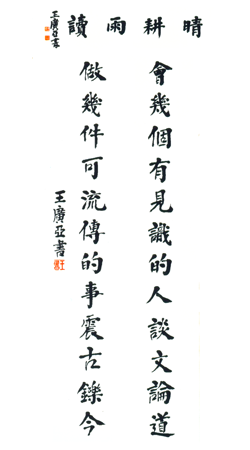 晴耕雨讀
王廣亞
會幾個有見識的人談文論道
做幾件可流傳的事震古鑠今
王廣亞書